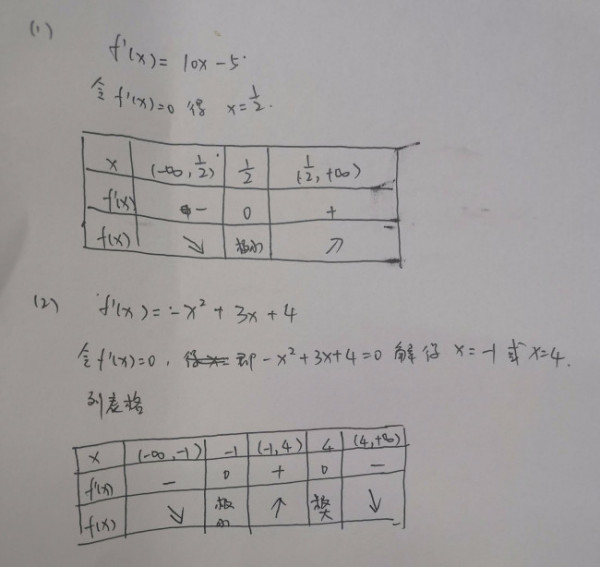 (1)
f'(x)= 10x-5.
令 f'(x)=0 得 x=1/2.
x (-∞,1/2) 1/2 (1/2,+∞)
f'(x) - 0 +
f(x) ↘ 极小 ↗
(2) f'(x)=-x²+3x+4
令f'(x)=0, 即-x²+3x+4=0 解得 x=-1 或 x=4.
列表格
x (-∞,-1) -1 (-1,4) 4 (4,+∞)
f'(x) - 0 + 0 -
f(x) ↘ 极小 ↑ 极大 ↓